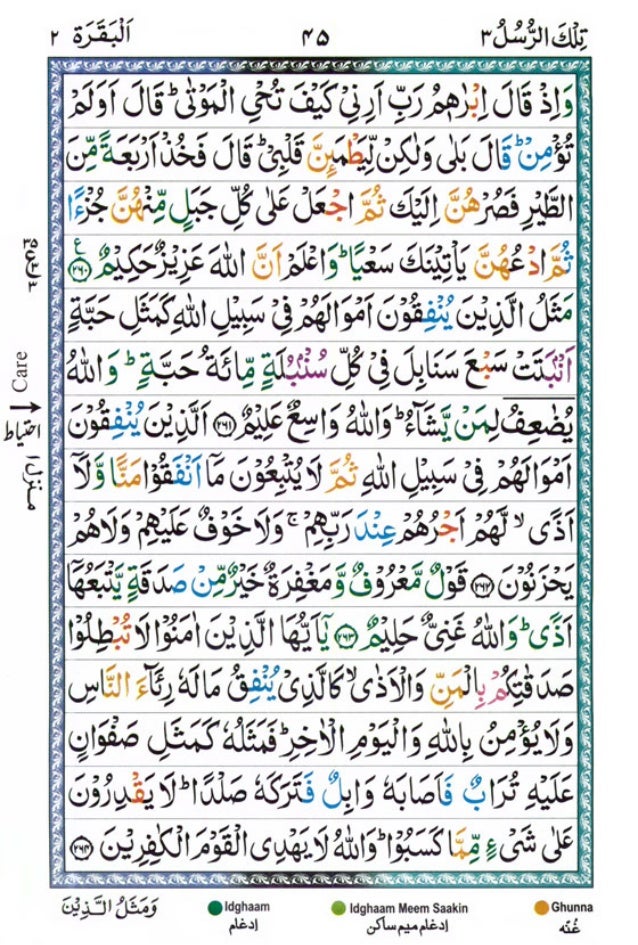 تِلْكَ الرُّسُلُ ٣
٤٥
اَلْبَقَرَة ٢
وَاِذْ قَالَ اِبْرٰهٖمُ رَبِّ اَرِنِيْ كَيْفَ تُحْيِ الْمَوْتٰىؕ قَالَ اَوَلَمْ
تُؤْمِنْؕ قَالَ بَلٰى وَلٰكِنْ لِّيَطْمَىِٕنَّ قَلْبِيْؕ قَالَ فَخُذْ اَرْبَعَةً مِّنَ
الطَّيْرِ فَصُرْهُنَّ اِلَيْكَ ثُمَّ اجْعَلْ عَلٰى كُلِّ جَبَلٍ مِّنْهُنَّ جُزْءًا
ثُمَّ ادْعُهُنَّ يَاْتِيْنَكَ سَعْيًاؕ وَاعْلَمْ اَنَّ اللّٰهَ عَزِيْزٌ حَكِيْمٌ ࣖ ۝٢٦٠
مَثَلُ الَّذِيْنَ يُنْفِقُوْنَ اَمْوَالَهُمْ فِيْ سَبِيْلِ اللّٰهِ كَمَثَلِ حَبَّةٍ
اَنْۢبَتَتْ سَبْعَ سَنَابِلَ فِيْ كُلِّ سُنْۢبُلَةٍ مِّائَةُ حَبَّةٍؕ وَاللّٰهُ
يُضٰعِفُ لِمَنْ يَّشَآءُؕ وَاللّٰهُ وَاسِعٌ عَلِيْمٌ ۝٢٦١ اَلَّذِيْنَ يُنْفِقُوْنَ
اَمْوَالَهُمْ فِيْ سَبِيْلِ اللّٰهِ ثُمَّ لَا يُتْبِعُوْنَ مَآ اَنْفَقُوْا مَنًّا وَّلَآ
اَذًىۙ لَّهُمْ اَجْرُهُمْ عِنْدَ رَبِّهِمْۚ وَلَا خَوْفٌ عَلَيْهِمْ وَلَا هُمْ
يَحْزَنُوْنَ ۝٢٦٢ قَوْلٌ مَّعْرُوْفٌ وَّمَغْفِرَةٌ خَيْرٌ مِّنْ صَدَقَةٍ يَّتْبَعُهَآ
اَذًىؕ وَاللّٰهُ غَنِيٌّ حَلِيْمٌ ۝٢٦٣ يٰٓاَيُّهَا الَّذِيْنَ اٰمَنُوْا لَا تُبْطِلُوْا
صَدَقٰتِكُمْ بِالْمَنِّ وَالْاَذٰىۙ كَالَّذِيْ يُنْفِقُ مَالَهٗ رِئَآءَ النَّاسِ
وَلَا يُؤْمِنُ بِاللّٰهِ وَالْيَوْمِ الْاٰخِرِؕ فَمَثَلُهٗ كَمَثَلِ صَفْوَانٍ
عَلَيْهِ تُرَابٌ فَاَصَابَهٗ وَابِلٌ فَتَرَكَهٗ صَلْدًاؕ لَا يَقْدِرُوْنَ
عَلٰى شَيْءٍ مِّمَّا كَسَبُوْاؕ وَاللّٰهُ لَا يَهْدِى الْقَوْمَ الْكٰفِرِيْنَ ۝٢٦٤
Care
احتياط
منزل ١
وَمَثَلُ الَّذِيْنَ
Idghaam
ادغام
Idghaam Meem Saakin
ادغام ميم ساكن
Ghunna
غُنّه